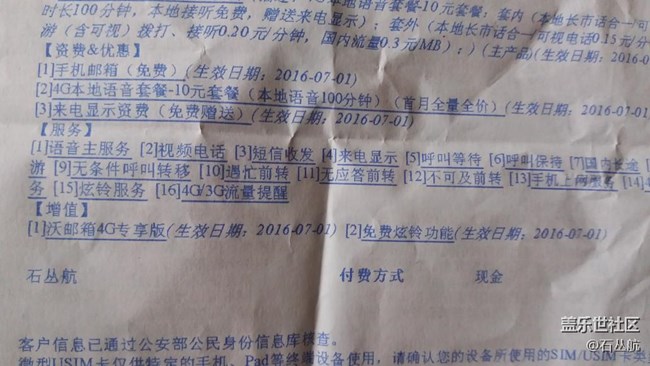 4G本地语音套餐-10元套餐:套内(本地长市话合一/可
时长100分钟,本地接听免费,赠送来电显示);套外(本地长市话合一/可视电话0.15元/分
游(含可视)拨打、接听0.20元/分钟,国内流量0.3元/MB););(主产品)(生效日期:201
【资费&优惠】
[1]手机邮箱(免费)(生效日期:2016-07-01)
[2]4G本地语音套餐-10元套餐(本地语音100分钟)(首月全量全价)(生效日期:2016-07-01
[3]来电显示资费(免费赠送)(生效日期:2016-07-01)
【服务】
[1]语音主服务 [2]视频电话 [3]短信收发 [4]来电显示 [5]呼叫等待 [6]呼叫保持 [7]国内长途
游 [9]无条件呼叫转移 [10]遇忙前转 [11]无应答前转 [12]不可及前转 [13]手机上网服务 [14]
务 [15]炫铃服务 [16]4G/3G流量提醒
【增值】
[1]沃邮箱4G专享版(生效日期:2016-07-01) [2]免费炫铃功能(生效日期:2016-07-01)
石丛航 付费方式 现金
客户信息已通过公安部公民身份信息库核查。
微型USIM卡仅供特定的手机、Pad等终端设备使用,请确认您的设备所使用的SIM/USIM卡类
盖乐世社区
@石丛航